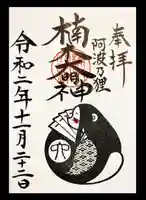 奉拝
阿波乃狸
楠大明神
令和二年十一月二十二日